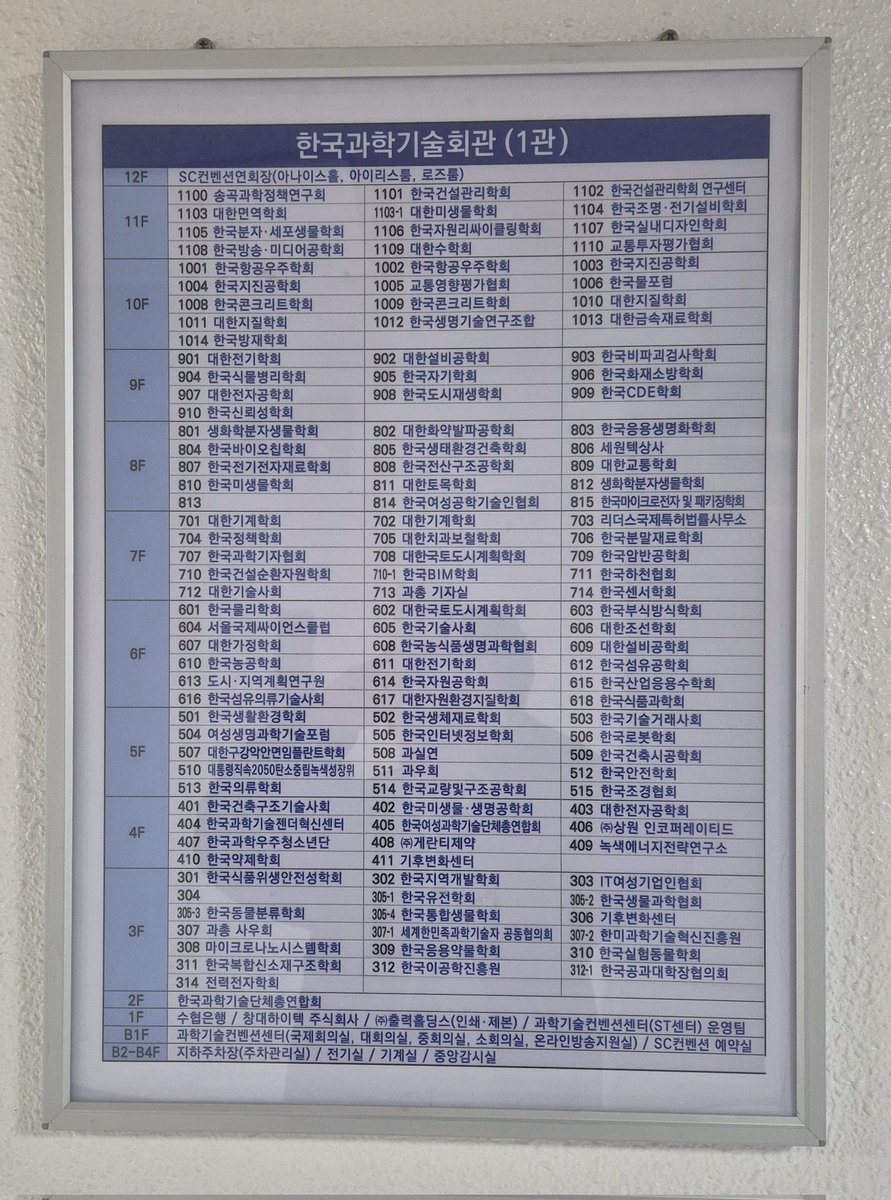 한국과학기술회관 (1관)
12F SC컨벤션연회장(아나이스홀, 아이리스룸, 로즈룸)
11F
1100 송곡과학정책연구회 1101 한국건설관리학회 1102 한국건설관리학회 연구센터
1103 대한면역학회 1103-1 대한미생물학회 1104 한국조명·전기설비학회
1105 한국분자·세포생물학회 1106 한국자원리싸이클링학회 1107 한국실내디자인학회
1108 한국방송·미디어공학회 1109 대한수학회 1110 교통투자평가협회
10F
1001 한국항공우주학회 1002 한국항공우주학회 1003 한국지진공학회
1004 한국지진공학회 1005 교통영향평가협회 1006 한국물포럼
1008 한국콘크리트학회 1009 한국콘크리트학회 1010 대한지질학회
1011 대한지질학회 1012 한국생명기술연구조합 1013 대한금속재료학회
1014 한국방재학회
9F
901 대한전기학회 902 대한설비공학회 903 한국비파괴검사학회
904 한국식물병리학회 905 한국자기학회 906 한국화재소방학회
907 대한전자공학회 908 한국도시재생학회 909 한국CDE학회
910 한국신뢰성학회
8F
801 생화학분자생물학회 802 대한화약발파공학회 803 한국응용생명화학회
804 한국바이오칩학회 805 한국생태환경건축학회 806 세원텍상사
807 한국전기전자재료학회 808 한국전산구조공학회 809 대한교통학회
810 한국미생물학회 811 대한토목학회 812 생화학분자생물학회
813 814 한국여성공학기술인협회 815 한국마이크로전자 및 패키징학회
7F
701 대한기계학회 702 대한기계학회 703 리더스국제특허법률사무소
704 한국정책학회 705 대한치과보철학회 706 한국분말재료학회
707 한국과학기자협회 708 대한국토도시계획학회 709 한국암반공학회
710 한국건설순환자원학회 710-1 한국BIM학회 711 한국하천협회
712 대한기술사회 713 과총 기자실 714 한국센서학회
6F
601 한국물리학회 602 대한국토도시계획학회 603 한국부식방식학회
604 서울국제싸이언스클럽 605 한국기술사회 606 대한조선학회
607 대한가정학회 608 한국농식품생명과학협회 609 대한설비공학회
610 한국농공학회 611 대한전기학회 612 한국섬유공학회
613 도시·지역계획연구원 614 한국자원공학회 615 한국산업응용수학회
616 한국섬유의류기술사회 617 대한자원환경지질학회 618 한국식품과학회
5F
501 한국생활환경학회 502 한국생체재료학회 503 한국기술거래사회
504 여성생명과학기술포럼 505 한국인터넷정보학회 506 한국로봇학회
507 대한구강악안면임플란트학회 508 과실연 509 한국건축시공학회
510 대통령직속2050탄소중립녹색성장위 511 과우회 512 한국안전학회
513 한국의류학회 514 한국교량및구조공학회 515 한국조경협회
4F
401 한국건축구조기술사회 402 한국미생물·생명공학회 403 대한전자공학회
404 한국과학기술젠더혁신센터 405 한국여성과학기술단체총연합회 406 ㈜상원 인코퍼레이티드
407 한국과학우주청소년단 408 ㈜게란티제약 409 녹색에너지전략연구소
410 한국약제학회 411 기후변화센터
3F
301 한국식품위생안전성학회 302 한국지역개발학회 303 IT여성기업인협회
304 305-1 한국유전학회 305-2 한국생물과학협회
305-3 한국동물분류학회 305-4 한국통합생물학회 306 기후변화센터
307 과총 사우회 307-1 세계한민족과학기술자 공동협의회 307-2 한미과학기술혁신진흥원
308 마이크로나노시스템학회 309 한국응용약물학회 310 한국실험동물학회
311 한국복합신소재구조학회 312 한국이공학진흥원 312-1 한국공과대학장협의회
314 전력전자학회
2F 한국과학기술단체총연합회
1F 수협은행 / 창대하이텍 주식회사 / ㈜출력홀딩스(인쇄·제본) / 과학기술컨벤션센터(ST센터) 운영팀
B1F 과학기술컨벤션센터(국제회의실, 대회의실, 중회의실, 소회의실, 온라인방송지원실) / SC컨벤션 예약실
B2-B4F 지하주차장(주차관리실) / 전기실 / 기계실 / 중앙감시실